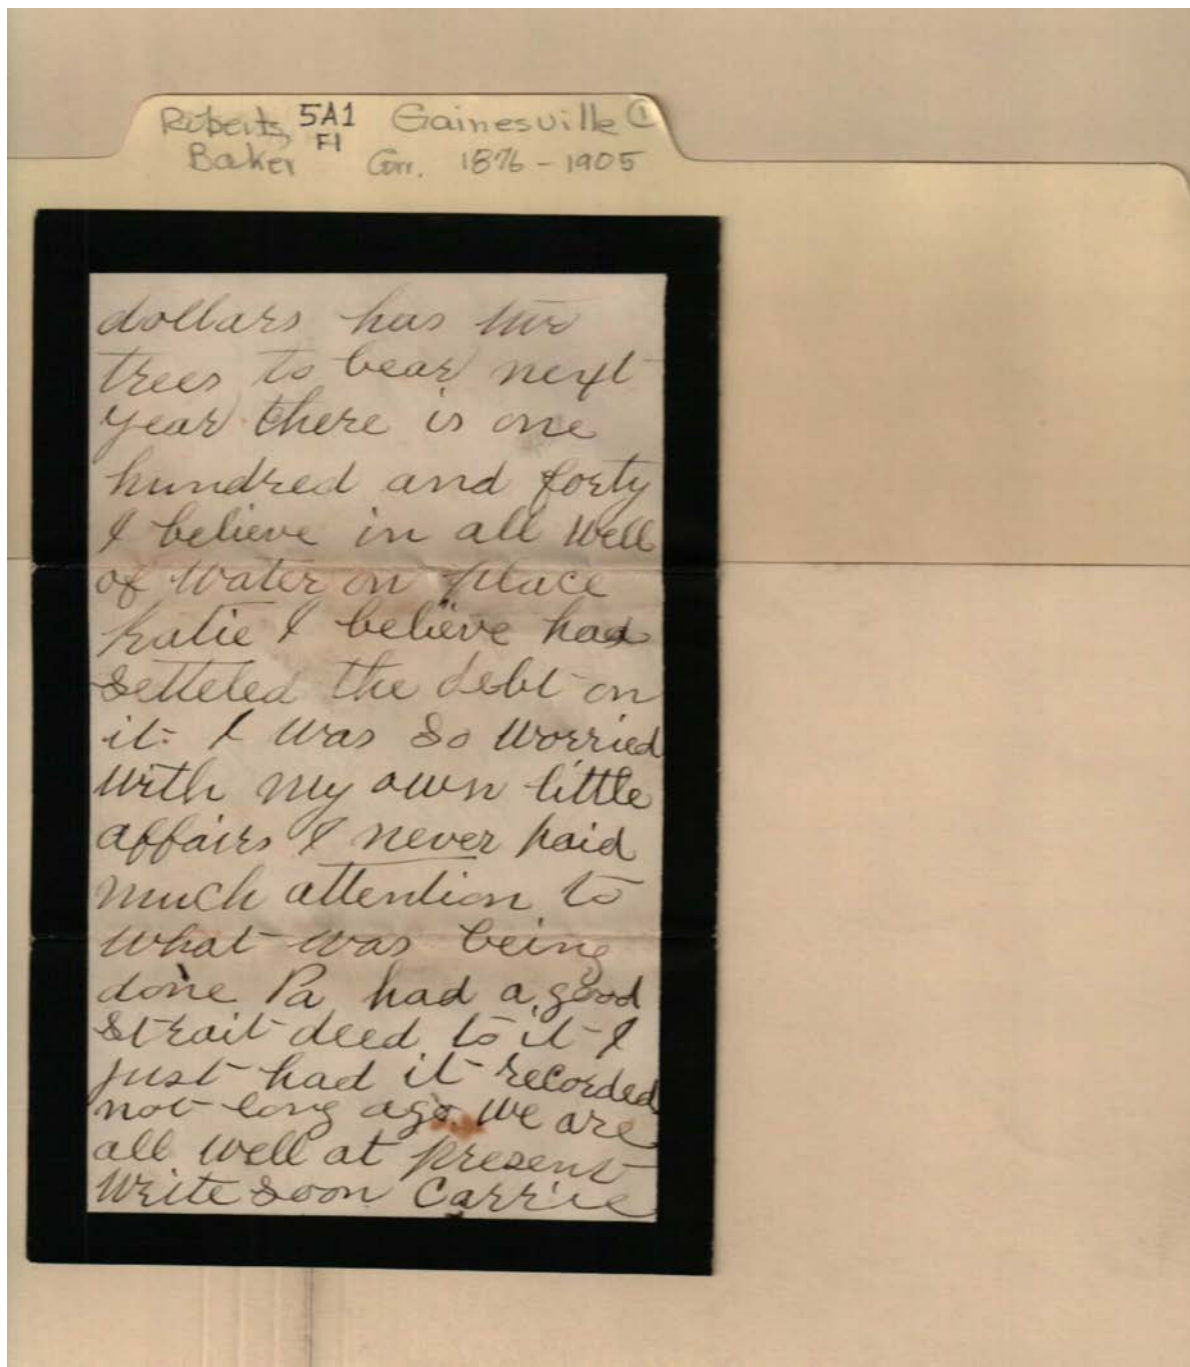 Roberts, 5A1 Gainesville ①
Baker F1 Corr. 1876-1905
dollars has two
trees to bear next
year there is one
hundred and forty
I believe in all Well
of Water on place
Katie I believe had
setteled the debt on
it. I was so worried
with my own little
affairs I never paid
much attention to
what was being
done Pa had a good
strait deed to it I
just had it recorded
not long ago We are
all well at present
Write soon Carrie